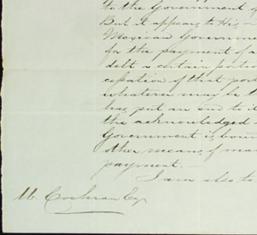 to the Government of
But it appears to His
Mexican Governme
for the payment of a
debt a certain porti
cepation of that por
whatever may be t
has put an end to it
the acknowledged
Government is bou
other means of ma
payment.—
I am also to
M. Cochran Esqr